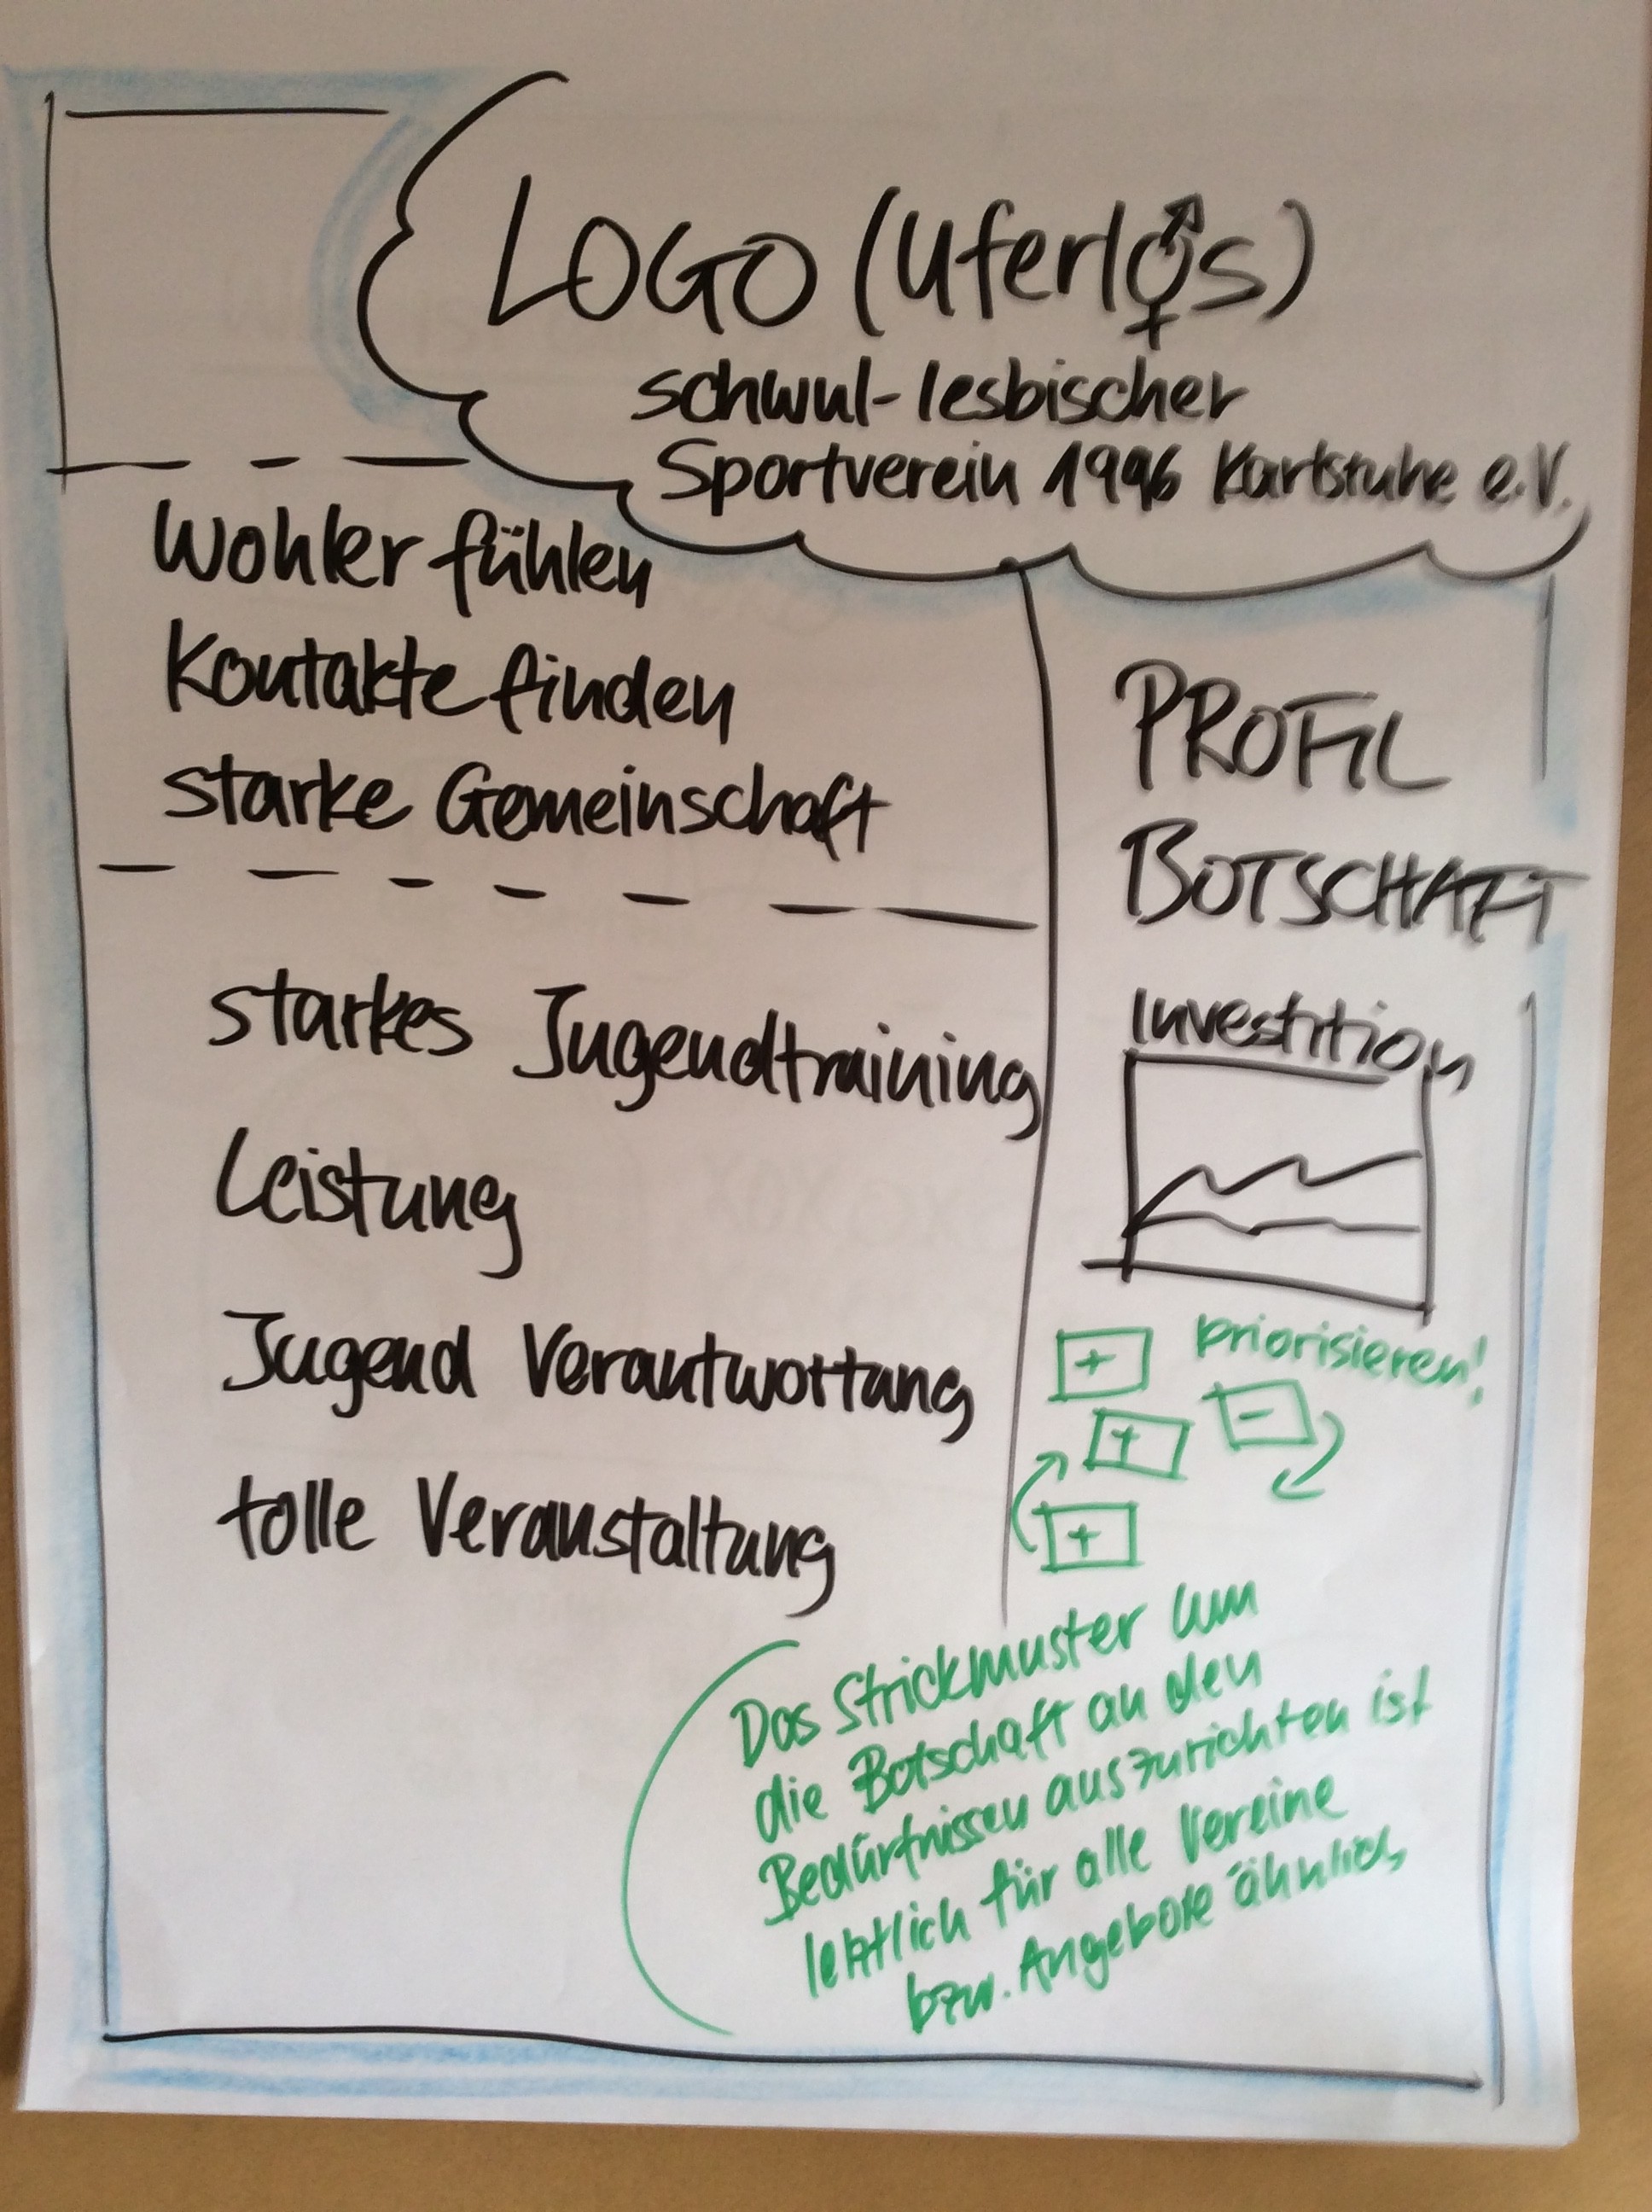 LOGO (Uferlos)
schwul-lesbischer
Sportverein 1996 Karlsruhe e.V.
Wohler fühlen
Kontakte finden
starke Gemeinschaft
starkes Jugendtraining
Leistung
Jugend Verantwortung
tolle Veranstaltung
PROFIL
BOTSCHAFT
Investition
+ priorisieren!
+ -
+
Das Strickmuster um
die Botschaft an den
Bedürfnissen auszurichten ist
letztlich für alle Vereine
bzw. Angebote ähnlich